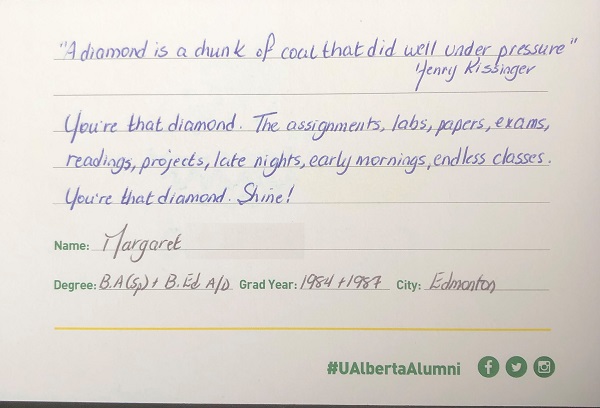 "A diamond is a chunk of coal that did well under pressure"
Henry Kissinger
You're that diamond. The assignments, labs, papers, exams,
readings, projects, late nights, early mornings, endless classes.
You're that diamond. Shine!
Name: Margaret
Degree: B.A(Sp) + B.Ed A/D Grad Year: 1984 + 1987 City: Edmonton
#UAlbertaAlumni